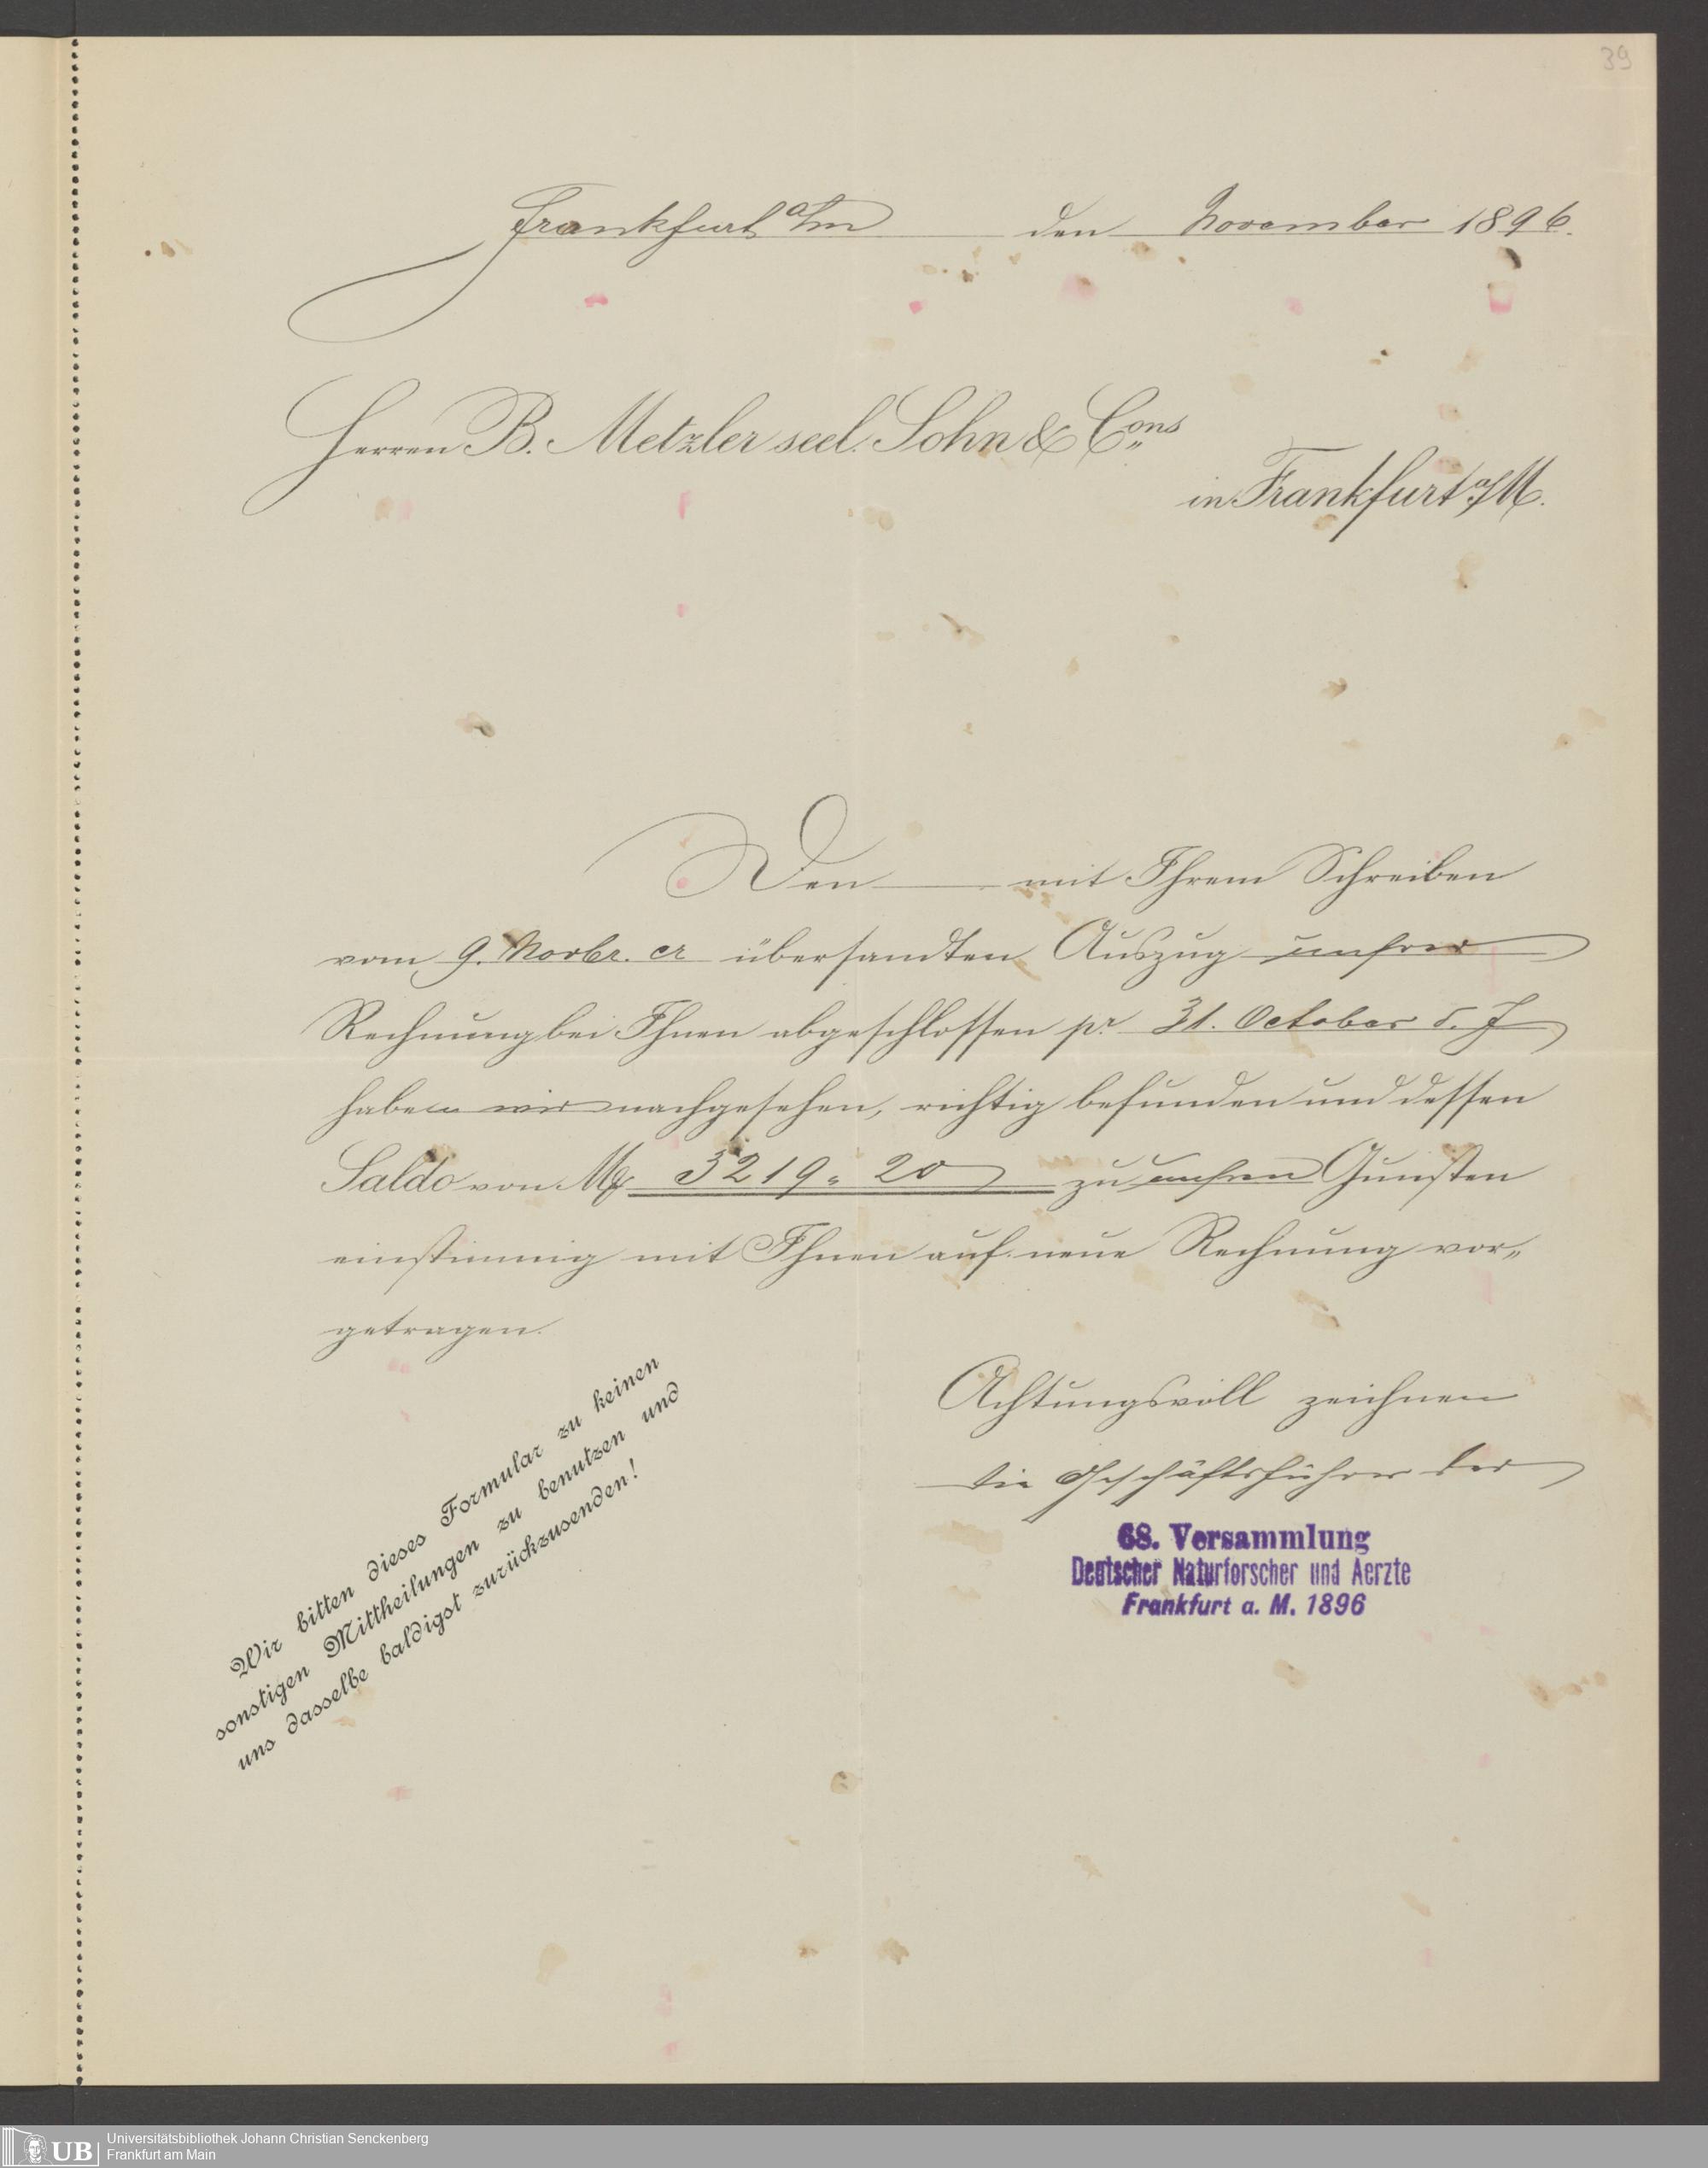 39
Frankfurt a/m den November 1896.
Herren B. Metzler seel. Sohn & Cons
in Frankfurt a/M.
Den mit Ihrem Schreiben
vom 9. Novbr. cr übersandten Auszug unsrer
Rechnung bei Ihnen abgeschlossen pr. 31. October d. J
haben wir nachgesehen, richtig befunden und dessen
Saldo von M 3219 " 20 zu unsren Gunsten
einstimmig mit Ihnen auf neue Rechnung vor„
getragen.
Achtungsvoll zeichnen
die Geschäftsführer der
68. Versammlung
Deutscher Naturforscher und Aerzte
Frankfurt a. M. 1896
Wir bitten dieses Formular zu keinen
sonstigen Mittheilungen zu benutzen und
uns dasselbe baldigst zurückzusenden!
UB
Universitätsbibliothek Johann Christian Senckenberg
Frankfurt am Main